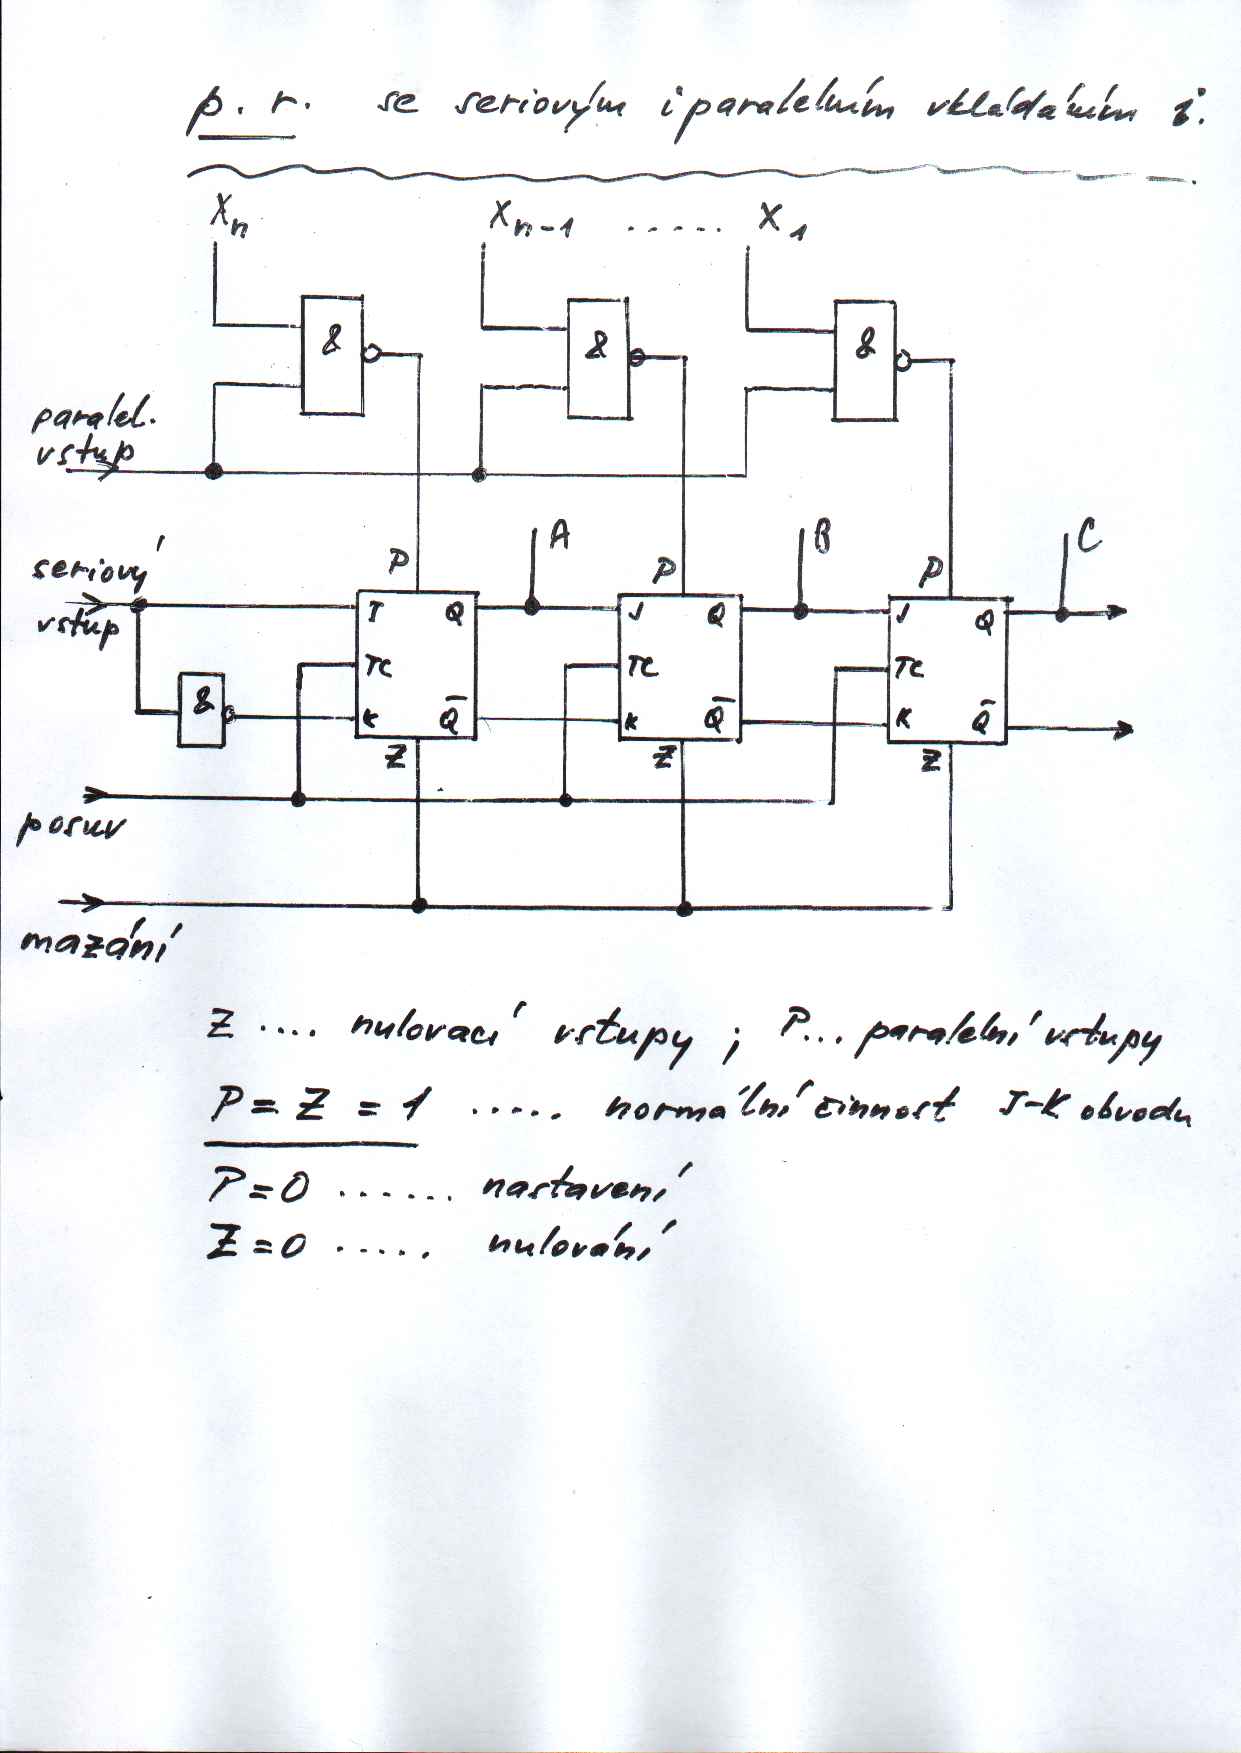 p. r. se seriovým i paralelním vkládáním i.
Xn Xn-1 ..... X1
& & &
paralel.
vstup
A B C
P P P
seriový
vstup
J Q J Q J Q
TC TC TC
&
K Q̅ K Q̅ K Q̅
Z Z Z
posuv
mazání
Z .... nulovací vstupy ; P... paralelní vstupy
P = Z = 1 ..... normální činnost J-K obvodu
P = 0 ...... nastavení
Z = 0 ..... nulování